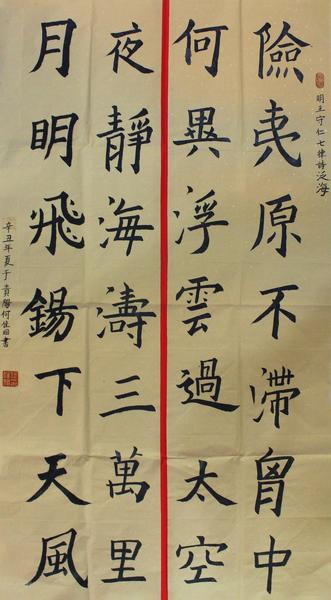 明王守仁七律詩泛海
險夷原不滯胷中
何異浮雲過太空
夜靜海濤三萬里
月明飛錫下天風
辛丑年夏于貴陽何書